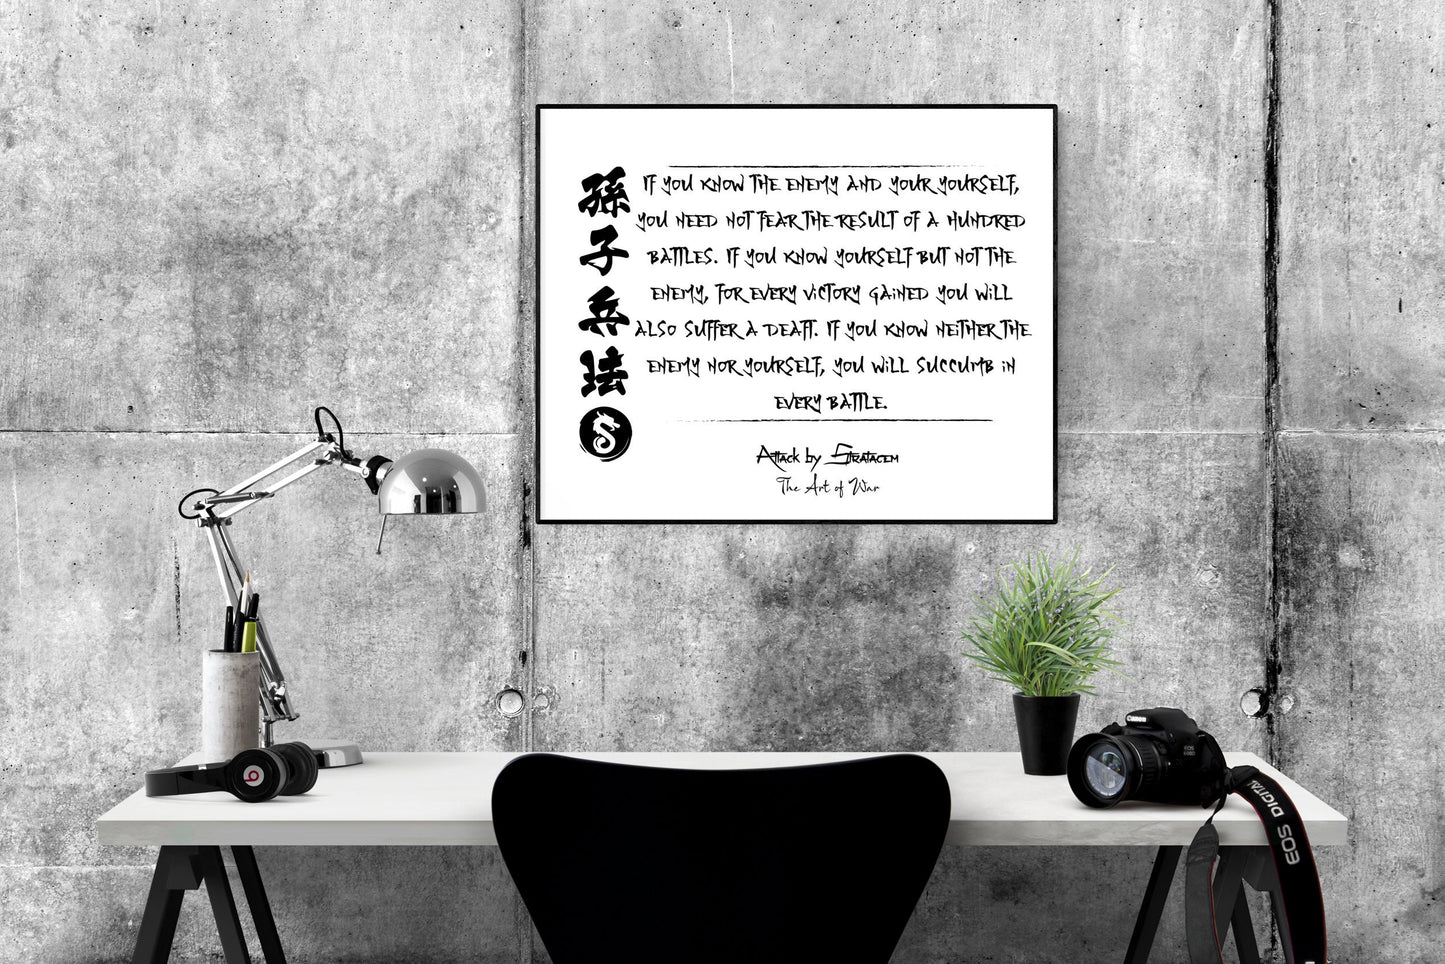 孫子兵法
IF YOU KNOW THE ENEMY AND YOUR YOURSELF,
YOU NEED NOT FEAR THE RESULT OF A HUNDRED
BATTLES. IF YOU KNOW YOURSELF BUT NOT THE
ENEMY, FOR EVERY VICTORY GAINED YOU WILL
ALSO SUFFER A DEAFT. IF YOU KNOW NEITHER THE
ENEMY NOR YOURSELF, YOU WILL SUCCUMB IN
EVERY BATTLE.
Attack by Stratacem
The Art of War
Canon
EOS
600D
EOS DIGITAL
b